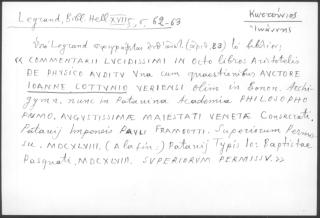 Legrand, Bibl. Hell. XVII 5, σ. 62-63
Κωττούνιος
Ἰωάννης
Ὑπὸ Legrand περιγράφεται (ἀριθ. 83) τὸ βιβλίον:
« COMMENTARII LUCIDISSIMI IN octo libros Aristotelis
DE PHYSICO AUDITU Una cum quaestionibus AUCTORE
IOANNE COTTUNIO VERIENSI olim in Bonon. Archi-
gymn. nunc in Patavina Academia PHILOSOPHO
PRIMO. AUGUSTISSIMAE MAIESTATI VENETAE Consecrati.
Patavij Impensis PAULI FRAMBOTTI. Superiorum Permis-
su. MDCXLVIII. (A la fin:) Patavij Typis Io: Baptistae
Pasquati, MDCXLVIII. SUPERIORUM PERMISSU. »